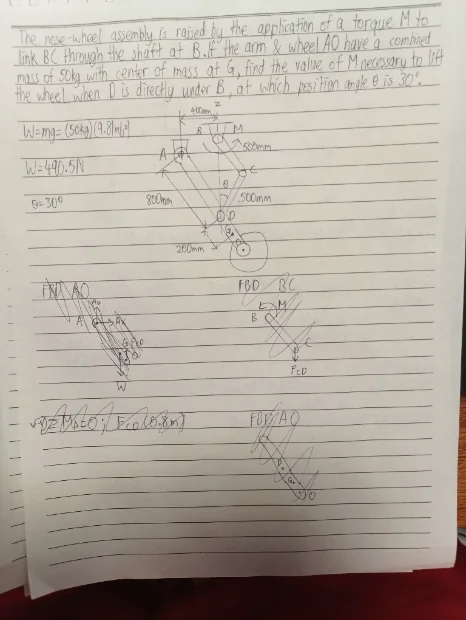 The nose-wheel assembly is raised by the application of a torque M to
link BC through the shaft at B. If the arm & wheel AO have a combined
mass of 50kg with center of mass at G, find the value of M necessary to lift
the wheel when D is directly under B, at which position angle θ is 30°.
400mm
W=mg= (50kg)(9.81m/s²)
B M
500mm
A
W=490.5N
C
θ
θ=30°
800mm
500mm
D
G
200mm
FBD AO
FBD BC
M
A Ax
B
C
FCD
W
ΣMA=0; FCD(0.8m)
FBD AO
D
G
O